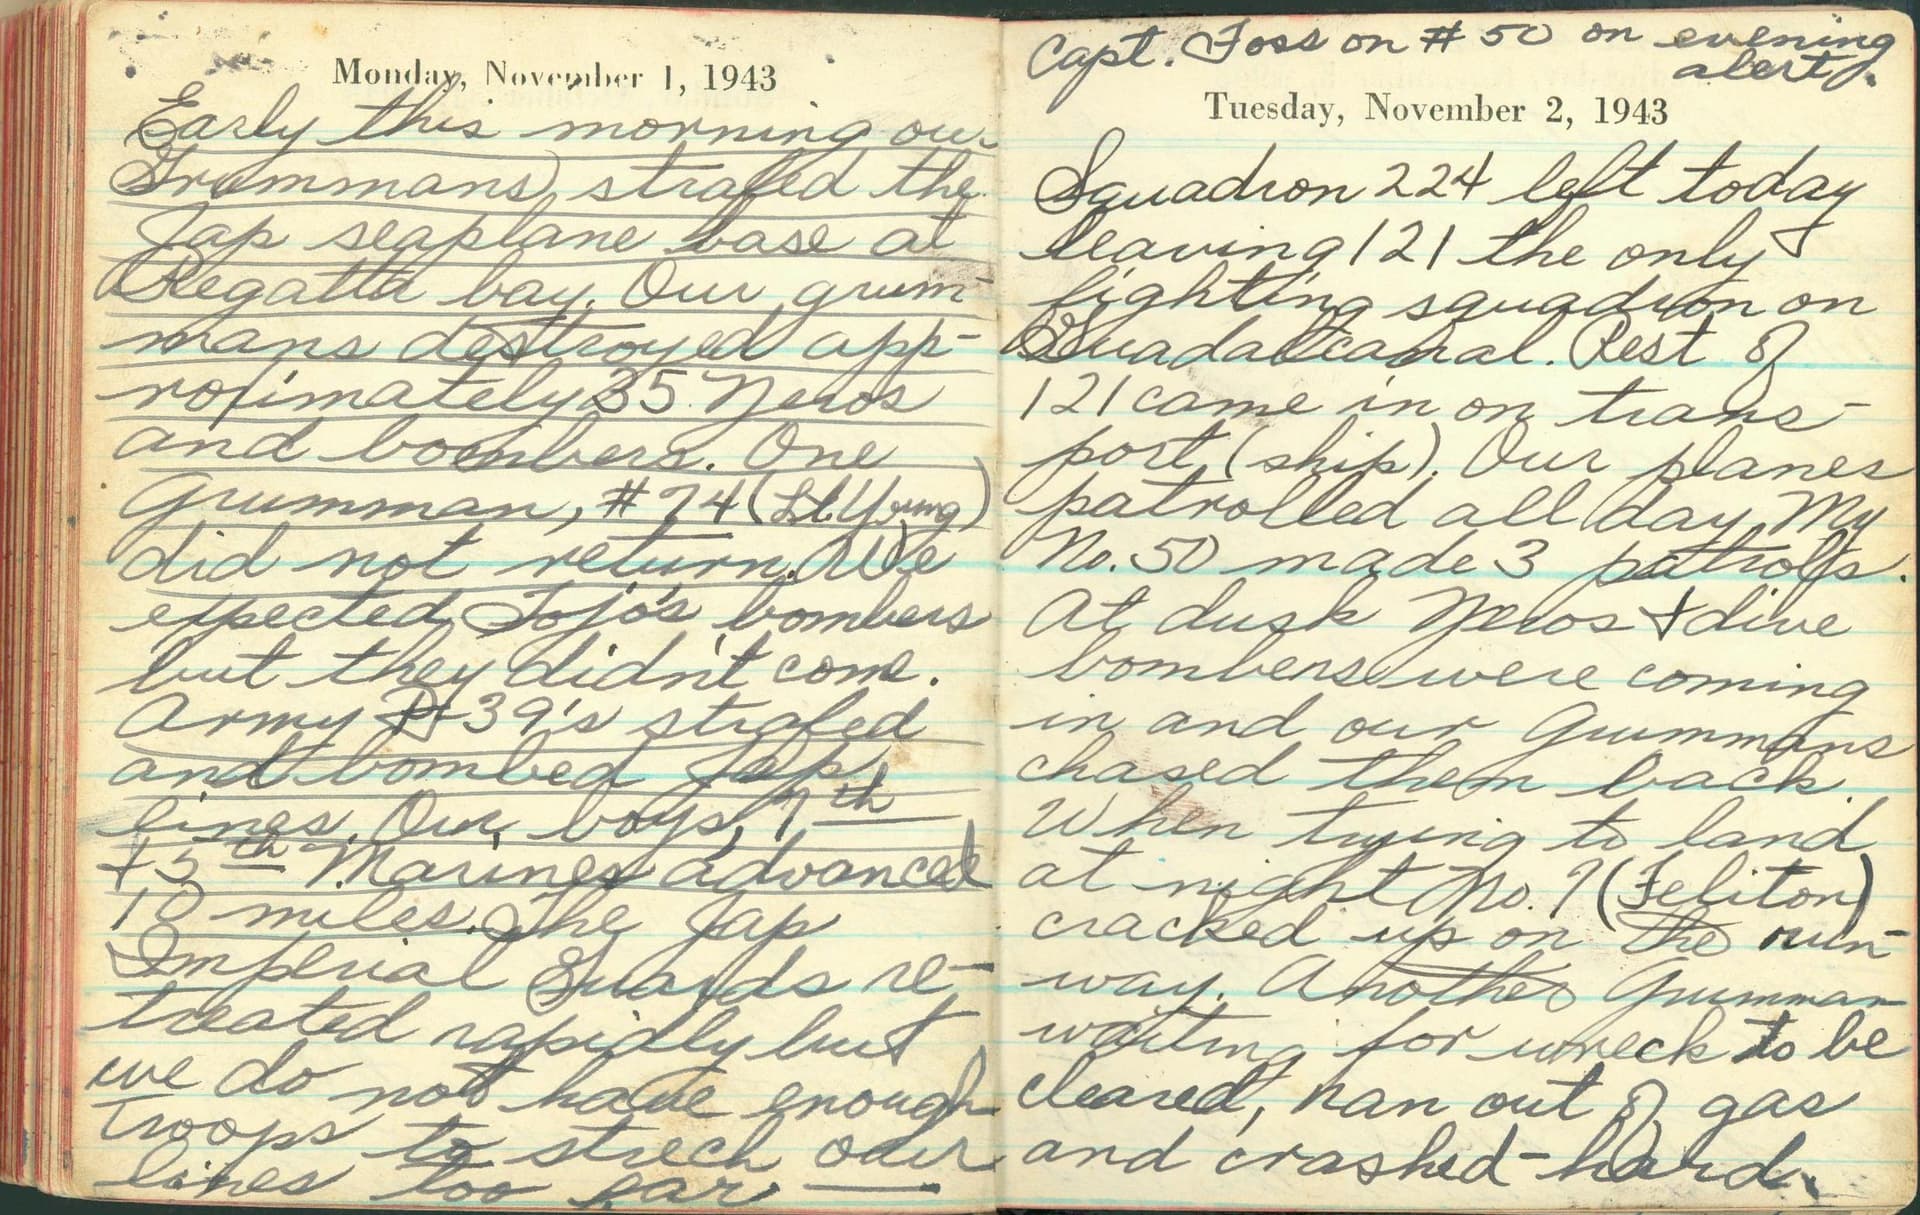 Monday, November 1, 1943
Early this morning our
Grummans strafed the
Jap seaplane base at
Regatta bay. Our grum-
mans destroyed app-
roximately 35 Zeros
and bombers. One
Grumman, #74 (Lt Young)
did not return. We
expected Tojo's bombers
but they didn't come.
Army P-39's strafed
and bombed Jap
lines. Our boys, 7th
+ 5th Marines advanced
10 miles. The Jap
Imperial Guards re-
treated rapidly but
we do not have enough
troops to strech our
lines too far.
Capt. Foss on #50 on evening
alert.
Tuesday, November 2, 1943
Squadron 224 left today
leaving 121 the only
fighting squadron on
Guadalcanal. Rest of
121 came in on trans-
port (ship). Our planes
patrolled all day. My
No. 50 made 3 patrols.
At dusk Zeros + dive
bombers were coming
in and our Grummans
chased them back.
When trying to land
at night No. 9 (Feliton)
cracked up on the run-
way. Another Grumman
waiting for wreck to be
cleared, ran out of gas
and crashed-hard.